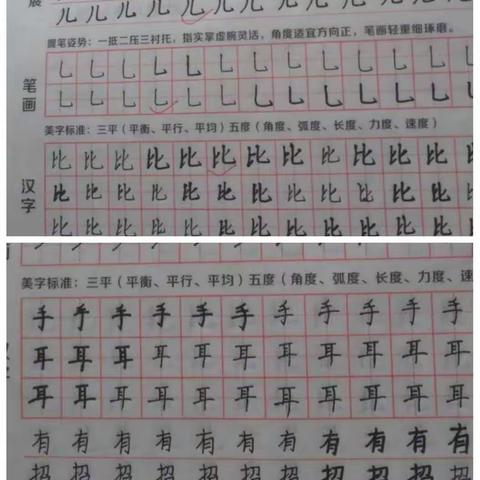 展
儿 儿 儿 儿 儿 儿 儿 儿 儿 儿 儿
握笔姿势：一抵二压三衬托，指实掌虚腕灵活，角度适宜方向正，笔画轻重细琢磨。
笔画
乚 乚 乚 乚 乚 乚 乚 乚 乚 乚 乚 乚 乚
乚 乚 乚 乚 乚 乚 乚 乚 乚 乚 乚 乚 乚
美字标准：三平（平衡、平行、平均）五度（角度、弧度、长度、力度、速度）
汉字
比 比 比 比 比 比 比 比 比 比 比 比 比
比 比 比 比 比 比 比 比 比 比 比 比 比
比 比 比 比 比 比 比 比 比 比 比 比 比
美字标准：三平（平衡、平行、平均）五度（角度、弧度、长度、力度、速
手 手 手 手 手 手 手 手 手 手 手
耳 耳 耳 耳 耳 耳 耳 耳 耳 耳 耳
耳 耳 耳 耳 耳 耳 耳 耳 耳 耳 耳
有 有 有 有 有 有 有 有 有 有 有
招 招 招 招 招 招 招 招 招 招 招